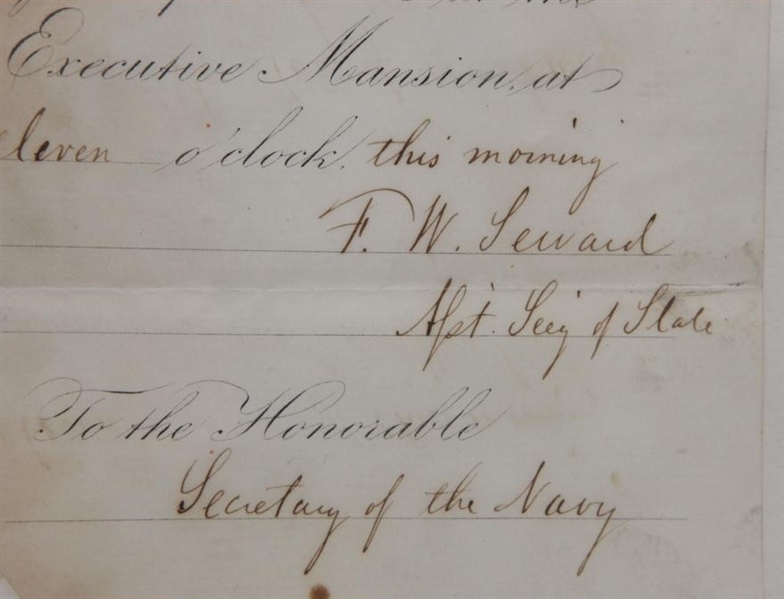 the
Executive Mansion, at
eleven o'clock, this morning
F. W. Seward
Asst. Secy of State
To the Honorable
Secretary of the Navy